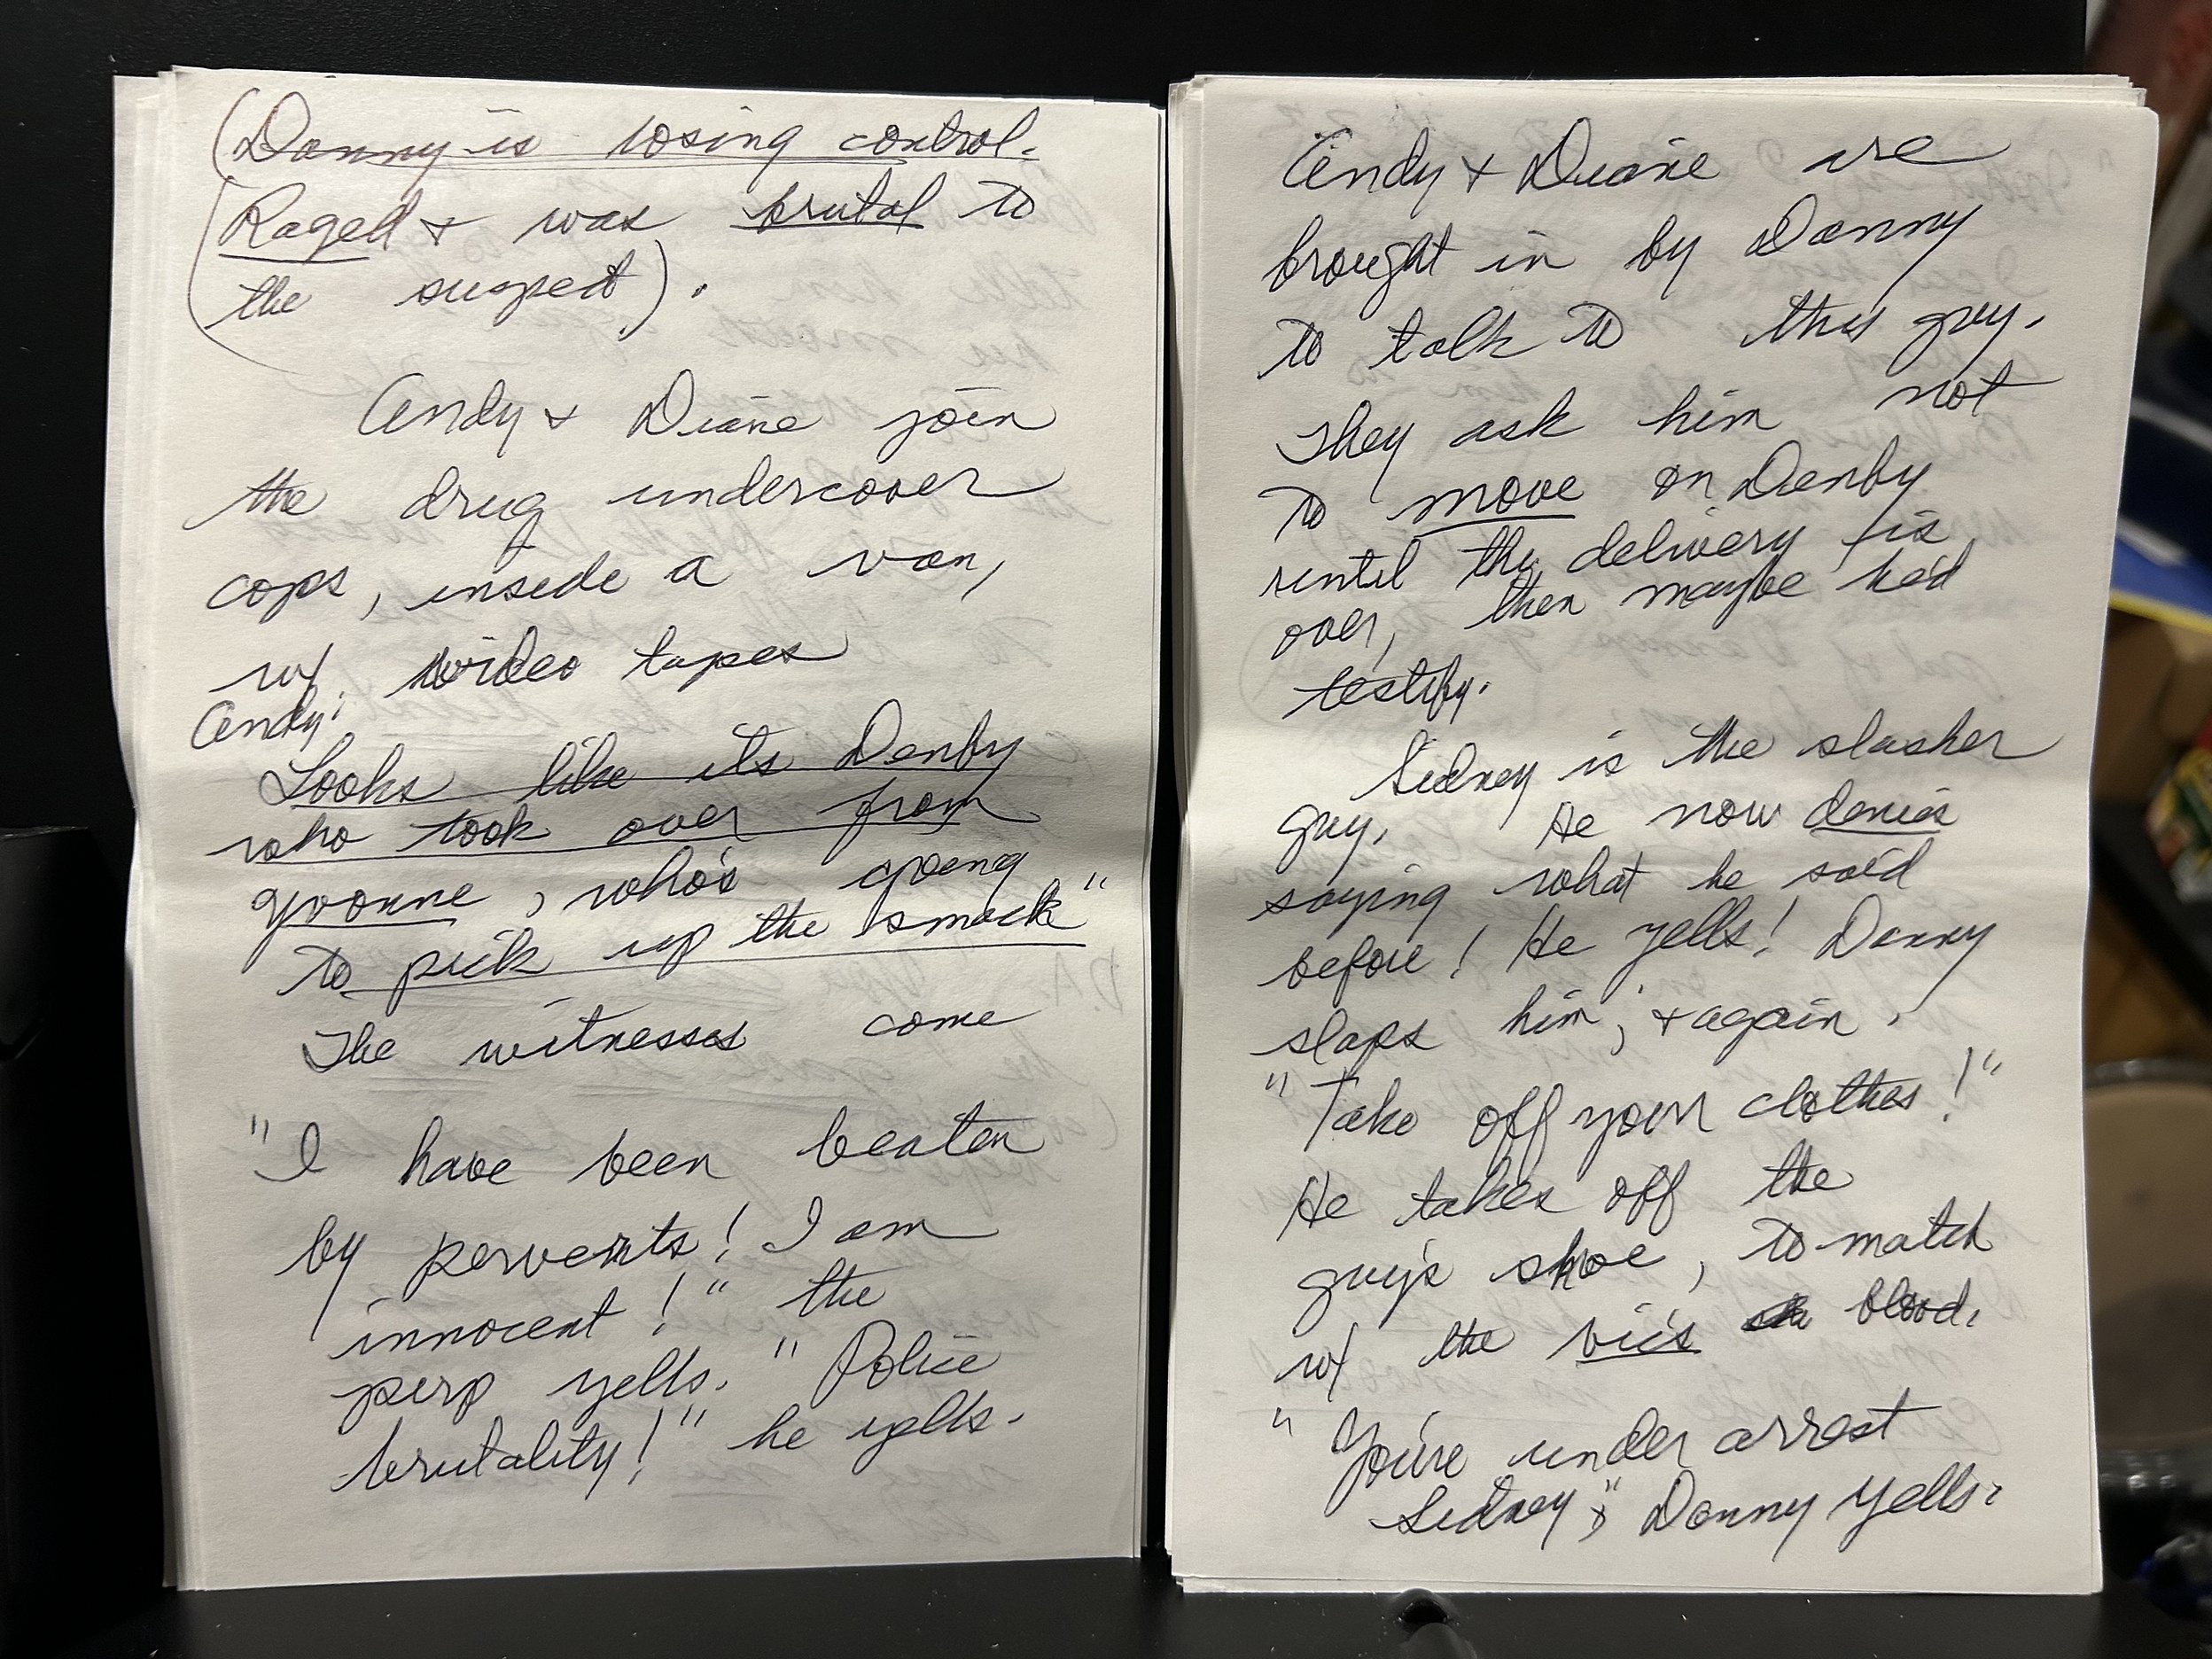 (Danny is losing control.
Raged + was brutal to
the suspect).
Andy + Diane join
the drug undercover
cops, inside a van,
w/ video tapes
Andy:
Looks like its Denby
who took over from
Yvonne, who's going
to pick up the smack"
The witnesses come
"I have been beaten
by perverts! I am
innocent!" the
perp yells. "Police
brutality!" he yells.
Andy + Diane are
brought in by Danny
to talk to this guy.
They ask him not
to move on Denby
until the delivery is
over, then maybe he'd
testify.
Sidney is the slasher
guy. He now denies
saying what he said
before! He yells! Danny
slaps him; + again.
"Take off your clothes!"
He takes off the
guy's shoe, to match
w/ the vic's blood.
"You're under arrest
Sidney"; Danny yells.